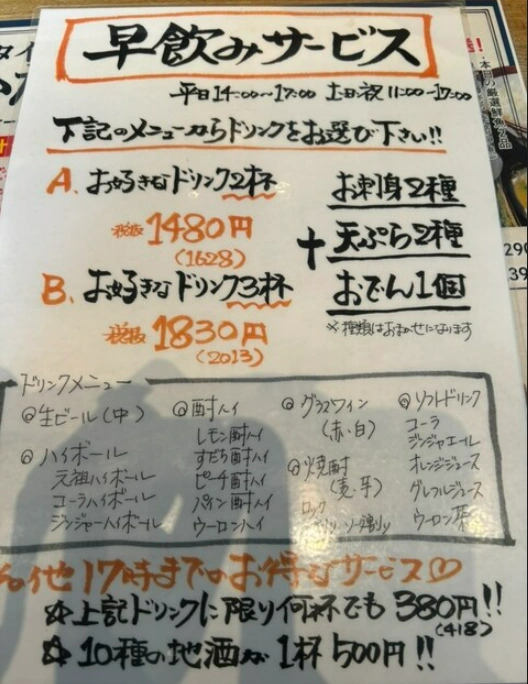 早飲みサービス
平日14:00〜17:00 土・日・祝11:00〜17:00
下記のメニューからドリンクをお選び下さい!!
A. お好きなドリンク2杯
税抜1480円
(1628)
B. お好きなドリンク3杯
税抜1830円
(2013)
+
お刺身2種
天ぷら2種
おでん1個
※種類はおまかせになります
ドリンクメニュー
◎生ビール(中)
◎ハイボール
元祖ハイボール
コーラハイボール
ジンジャーハイボール
◎酎ハイ
レモン酎ハイ
すだち酎ハイ
ピーチ酎ハイ
パイン酎ハイ
ウーロンハイ
◎グラスワイン
(赤・白)
◎焼酎
(麦・芋)
ロック
ソーダ割り
◎ソフトドリンク
コーラ
ジンジャエール
オレンジジュース
グレフルジュース
ウーロン茶
他17時までのお得なサービス♡
☆上記ドリンクに限り何杯でも380円!!
(418)
☆10種の地酒が1杯500円!!
本日の厳選鮮カブ品
290
39